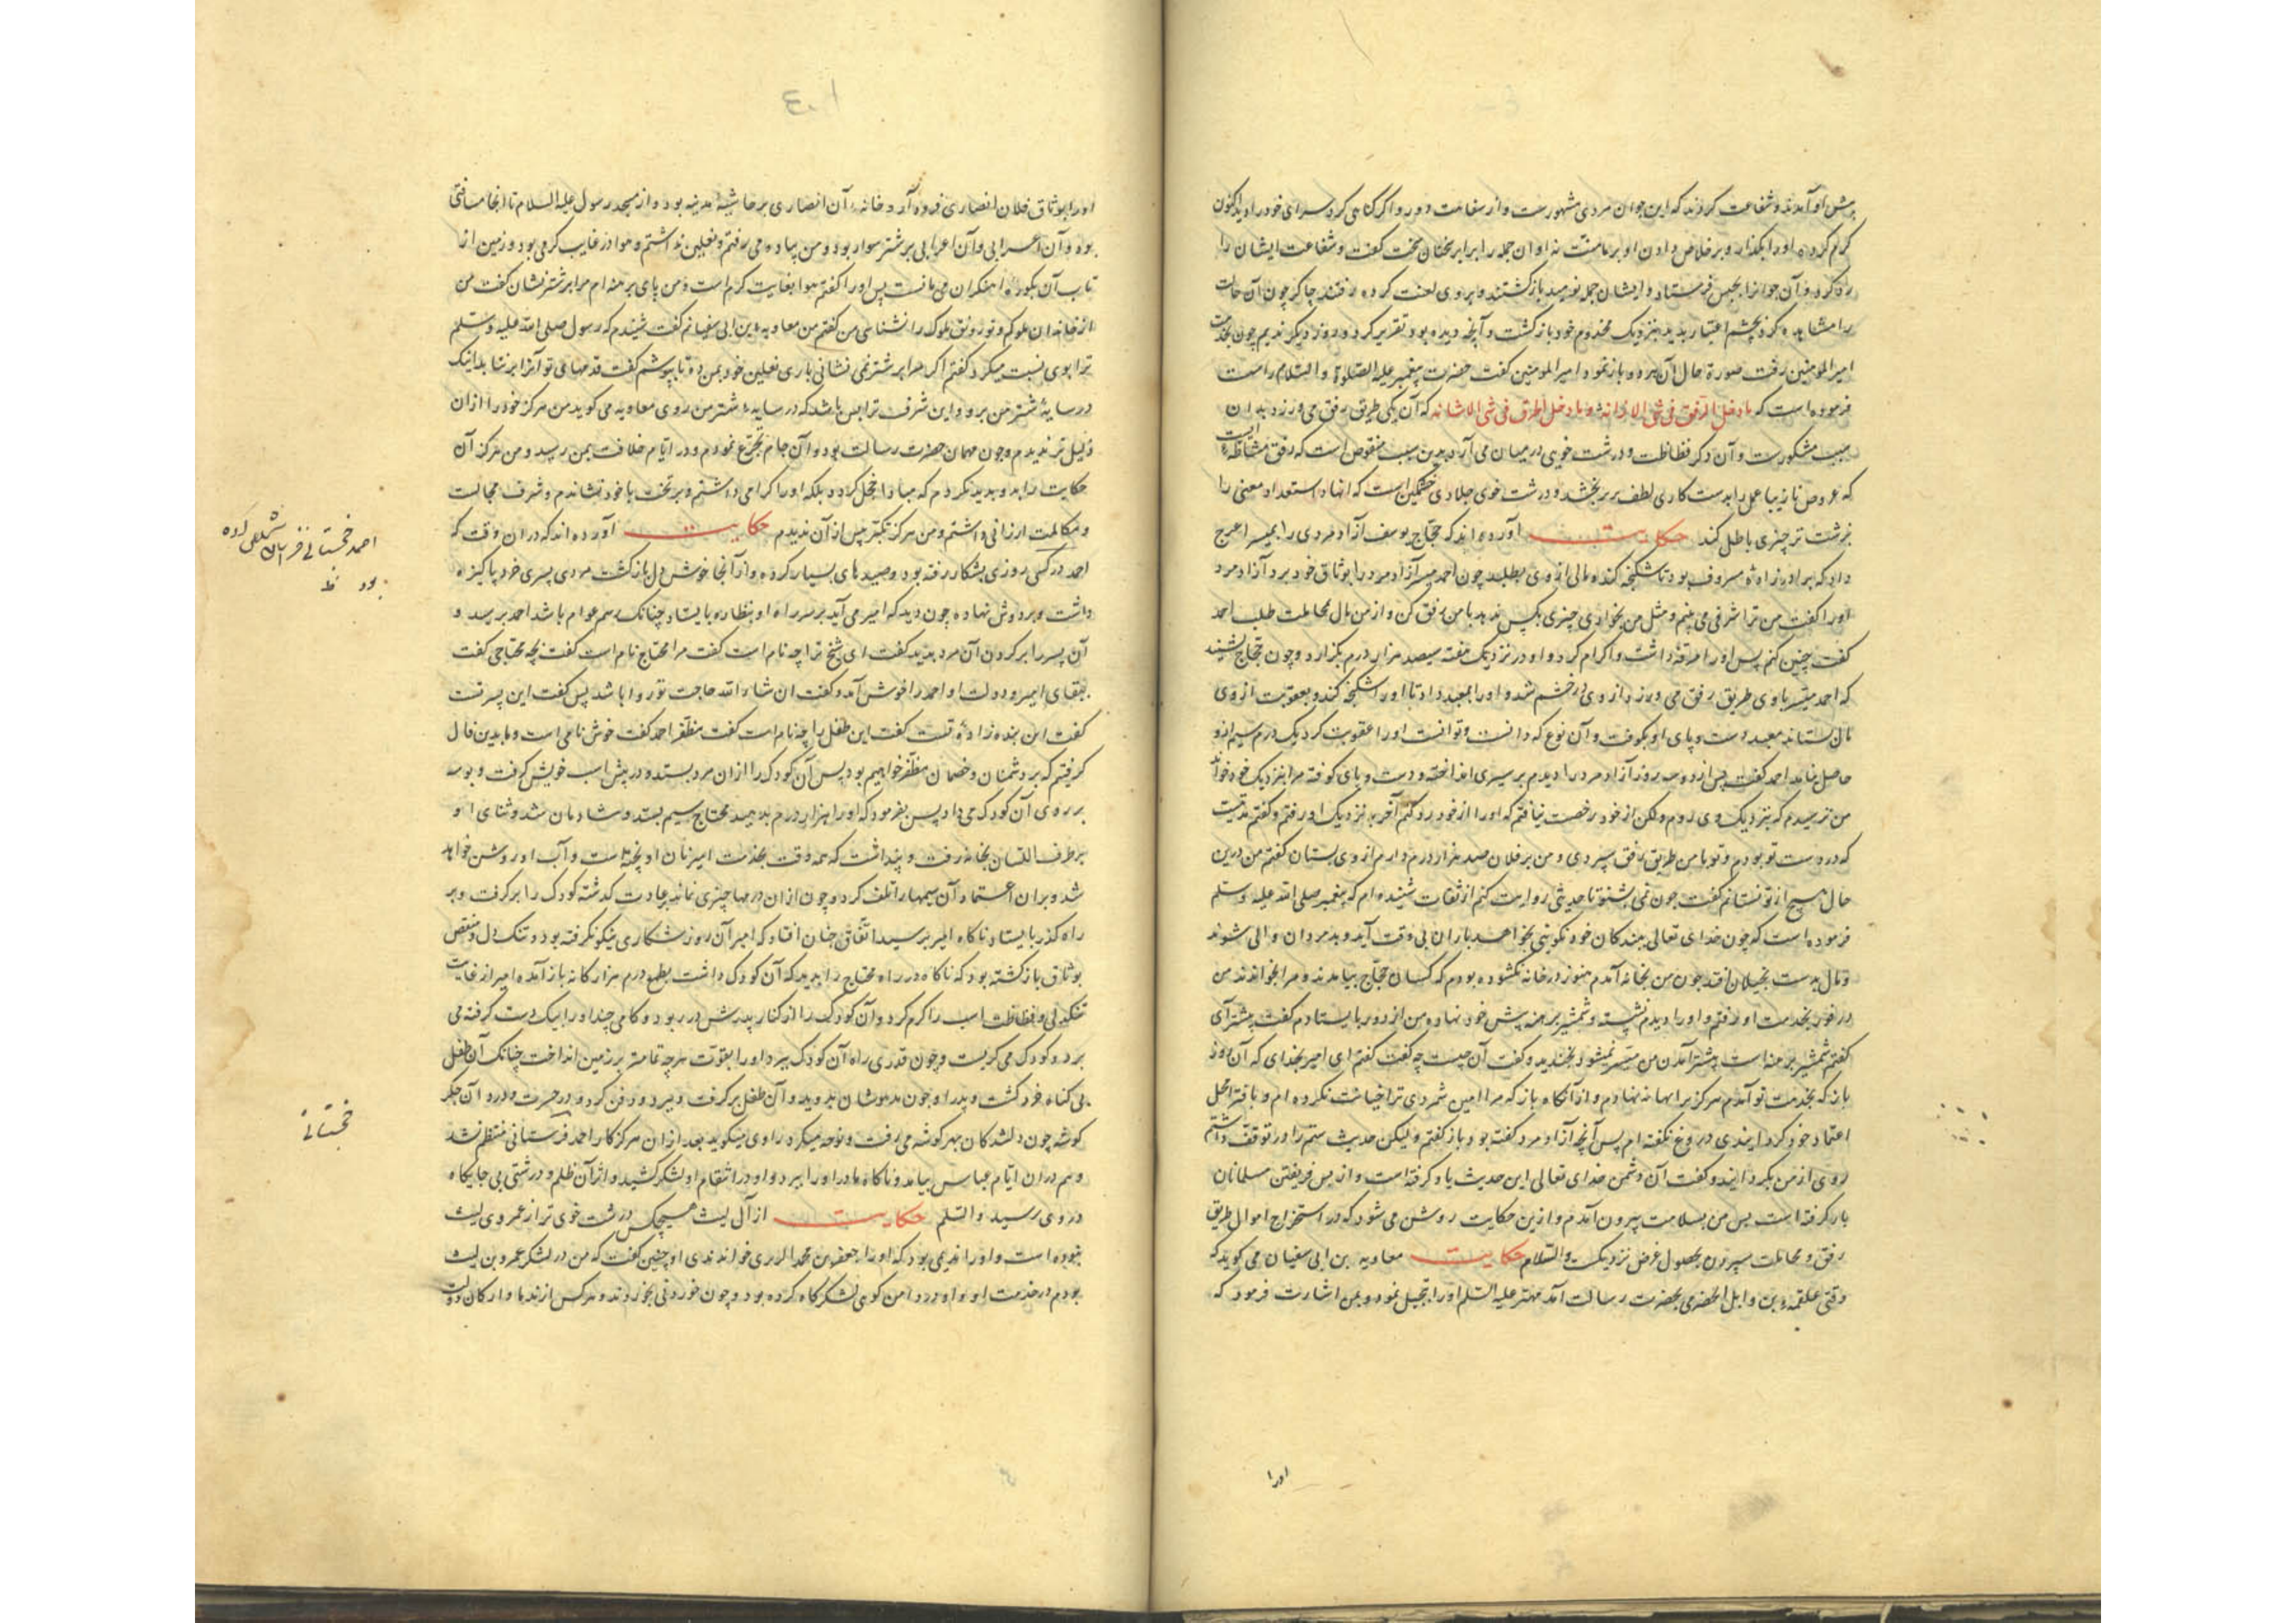 پیش او آمدند و شفاعت کردند که این جوان مردی مشهورست و از سفاهت دور و اگر گناهی کرد سزای خود را دید اکنون
کرم کرده او را بگذار و بر خلاص دادن او بر ما منت نه او آن جمله را برابر سخنان سخت گفت و شفاعت ایشان را
رد کرد و آن جوانرا بحبس فرستاد و ایشان جمله نومید بازگشتند و بروی لعنت کرده رفتند چاکر چون آن حالت
را مشاهده کرد بچشم اعتبار بدید بنزدیک مخدوم خود بازگشت و آنچه دیده بود تقریر کرد و روز دیگر ندیم چون بخدمت
امیر المومنین رفت صورة حال آن هر دو باز نمود امیر المومنین گفت حضرت پیغمبر علیه الصلوة و السلام راست
فرموده است که ما دخل الرفق فی شی الا زانه و ما دخل الخرق فی شی الا شانه که آن یکی طریق رفق می ورزد بدان
سبب مشکورست و آن دگر فظاظت و درشت خویی در میان می آرد بدین سبب منقوص است که رفق مشاطه ایست
که عروس نازیبا عمل را بدست کاری لطف بخشد و درشت خوی جلادی خشمگین است که استعداد معنی را
بزشت تر چیزی باطل کند حکایت آورده اند که حجاج یوسف آزاد مردی را باعرج
داد که برادرزاده معروف بود تا شکنجه کند و مالی از وی بطلبد چون احمد آزاد مرد را بوثاق خود برد آزاد مرد
او را گفت من ترا شرفی می بینم و مثل من بخواری چیزی بکس ندهد با من رفق کن و از من مال بمجاملت طلب احمد
گفت چنین کنم پس او را مرفه داشت و اکرام کرد و او در نزدیک هفته سیصد هزار درم بگزارد و چون حجاج بشنید
که احمد با وی طریق رفق می ورزد از وی در خشم شد و او را بمعبد داد تا او را شکنجه کند و بعقوبت از وی
مال بستاند معبد دست و پای او بکوفت و آن نوع که دانست و توانست او را عقوبت کرد یک درم سیم ازو
حاصل نیامد احمد گفت پس از دو سه روز آزاد مرد را دیدم بر ستری انداخته و دست و پای کوفته مرا بنزدیک خود خواند
من ترسیدم که بنزدیک وی روم ولکن از خود رخصت نیافتم که او را از خود رد کنم آخر بنزدیک او رفتم و گفتم مدتیست
که در دست تو بودم و تو با من طریق رفق سپردی و من بر فلان صد هزار درم دارم از وی بستان گفتم من درین
حال هیچ از تو نستانم گفت چون نمی بستانی بشنو تا حدیثی روایت کنم از ثقات شنیده ام که پیغمبر صلی الله علیه و سلم
فرموده است که چون خدای تعالی ببندگان خود نکویی بخواهد باران بی وقت آید و بد مردان والی شوند
و مال بدست بخیلان افتد چون من بخانه آمدم هنوز در خانه نگشوده بودم که کسان حجاج بیامدند و مرا بخواندند من
در فور بخدمت او رفتم و او را دیدم نشسته و شمشیر برهنه پیش خود نهاده من از دور بایستادم گفت پیشتر آی
گفتم شمشیر برهنه است پیشتر آمدن من میسر نمیشود بخندید و گفت آن چیست چه گفت گفتم ای امیر بخدای که آن روز
باز که بخدمت تو آمدم هرگز بر ابهانه نهادم و از آنگاه باز که مرا امین شمردی ترا خیانت نکرده ام و با
اعتماد خود کرد دروغ نگفته ام پس آنچه آزاد مرد گفته بود باز گفتم ولیکن حدیث ستم را در توقف داشتم
روی از من بگردانید و گفت آن دشمن خدای تعالی این حدیث یاد گرفته است و از پس فریفتن مسلمانان
بار گرفته است پس من بسلامت بیرون آمدم و ازین حکایت روشن می شود که در استخراج اموال طریق
رفق و مجاملت سپردن بحصول غرض نزدیکست والسلام حکایت معاویه بن ابی سفیان می گوید که
وقتی علقمه بن وایل الحضرمی بحضرت رسالت آمد مهتر علیه السلم او را تبجیل نمود و بمن اشارت فرمود که
اورا
۴۰۱
او را بوثاق فلان انصاری فرود آرد و خانه آن انصاری بر حاشیه مدینه بود و از مسجد رسول علیه السلام تا انجا مسافتی
بود و آن اعرابی بر شتر سوار بود و من پیاده می رفتم و نعلین نداشتم و هوا در غایت گرمی بود و زمین از
تاب آن بکوره آهنگران می مانست پس او را گفتم هوا بغایت گرم است و من پای برهنه ام مرا بر شتر نشان گفت من
از خاندان ملوکم و تو رونق ملوک را نشناسی من گفتم من معاویه بن ابی سفیانم گفت شنیدم که رسول صلی الله علیه و سلم
ترا بوی نسبت میکرد گفتم اگر مرا بر شتر نمی نشانی باری نعلین خود بمن ده تا بپوشم گفت قدمهای تو آنرا برنتابد اینک
در سایه شتر من برو و این شرف ترا بس باشد که در سایه شتر من روی معاویه می گوید من هرگز خود را ازان
ذلیل تر ندیدم و چون مهمان حضرت رسالت بود آن جام تجرع نمودم و در ایام خلافت بمن رسید و من هرگز آن
حکایت را پدید نکردم که مبادا خجل گردد بلکه او را گرامی داشتم و بر تخت با خود نشاندم و شرف مجالست
و مکالمت ارزانی داشتم و من هرگز تکبر پس از آن ندیدم حکایت آورده اند که در آن وقت که
احمد در روزی بشکار رفته بود و صیدهای بسیار کرده و از آنجا خوش دل بازگشت مردی پسری خرد پاکیزه
داشت و بر دوش نهاده چون دید که امیر می آید بر سر راه او بنظاره بایستاد چنانک رسم عوام باشد احمد برسید و
آن پسر را بر گردن آن مرد بدید گفت ای شیخ ترا چه نام است گفت مرا محتاج نام است گفت بچه محتاجی گفت
ببقای امیر و دولت او احمد را خوش آمد و گفت ان شاء الله حاجت تو روا باشد پس گفت این پسر تست
گفت این بنده زاده تست گفت این طفل را چه نام است گفت مظفر احمد گفت خوش نامی است و ما بدین فال
گرفتیم که بر دشمنان و خصمان مظفر خواهیم بود پس آن کودک را از ان مرد بستد و در پیش اسب خویش گرفت و بوسه
بر روی آن کودک می داد پس بفرمود که او را هزار درم بدهید محتاج سیم بستد و شادمان شد و ثنای او
بر طرف اللسان بخانه رفت و پنداشت که همه وقت بخدمت امیر نان او پخته است و آب او روشن خواهد
شد و بران اعتماد آن سیمها را تلف کرد و چون از ان درمها چیزی نماند بعادت گذشته کودک را برگرفت و بر
راه گذر بایستاد ناگاه امیر برسید اتفاق چنان افتاد که امیر آن روز شکاری نیکو نگرفته بود و تنگ دل و منغص
بوثاق بازگشته بود که ناگاه در راه محتاج را بدید که آن کودک داشت بطمع درم هزارگانه باز آمده امیر از غایت
تنگدلی و فظاظت اسب را گرم کرد و آن کودک را از کنار پدرش در ربود و گامی چند او را بیک دست گرفته می
برد و کودک می گریست و چون قدری راه آن کودک ببرد او را بقوت هر چه تمامتر بر زمین انداخت چنانک آن طفل
بی گناه خرد گشت و پدر او چون مدهوشان بدوید و آن طفل برگرفت و ببرد و دفن کرد و در حسرت و درد آن جگر
گوشه چون دلشدگان بهر گوشه می رفت و نوحه میکرد راوی میگوید بعد از ان هرگز کار احمد منتظم نشد
و هم در ان ایام عباس بیامد و ناگاه مادر او را ببرد و او در انتقام او لشکر کشید و اثر آن ظلم و درشتی بی جایگاه
در وی رسید والسلم حکایت از آل لیث هیچکس درشت خوی تر از عمروی لیث
نبوده است و او را ندیمی بود که او را جعفر بن محمد الرازی خواندندی او چنین گفت که من در لشکر عمرو بن لیث
بودم در خدمت او و او در دامن کوهی لشکرگاه کرده بود و چون خوردنی بخوردند و هر کس از ندما و ارکان دولت
احمد خجستانی
بود ظ
خجستانی